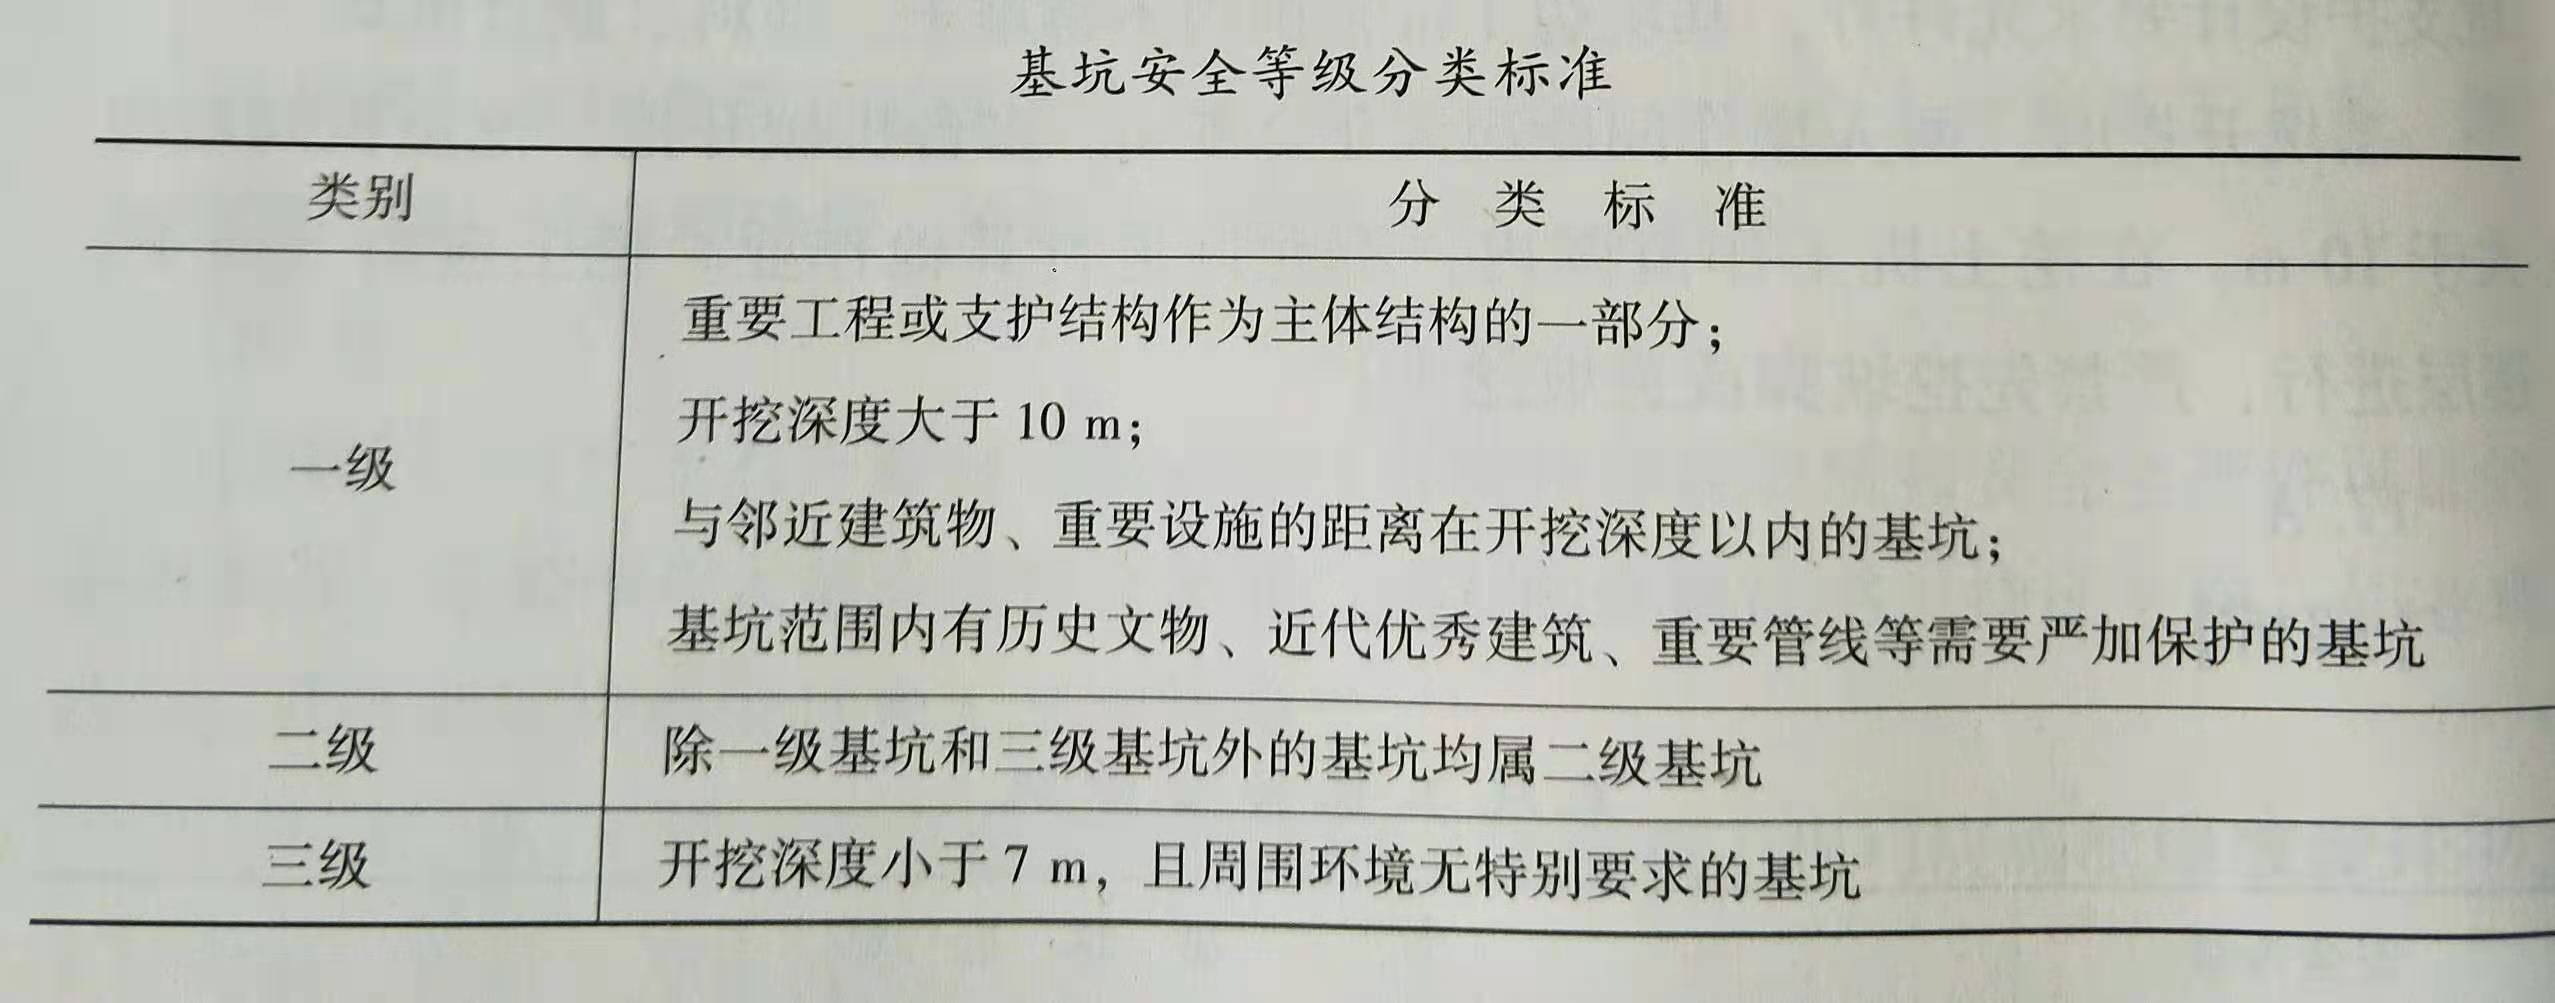 基坑安全等级分类标准
类别 分类标准
一级
重要工程或支护结构作为主体结构的一部分；
开挖深度大于 10 m；
与邻近建筑物、重要设施的距离在开挖深度以内的基坑；
基坑范围内有历史文物、近代优秀建筑、重要管线等需要严加保护的基坑
二级 除一级基坑和三级基坑外的基坑均属二级基坑
三级 开挖深度小于 7 m，且周围环境无特别要求的基坑